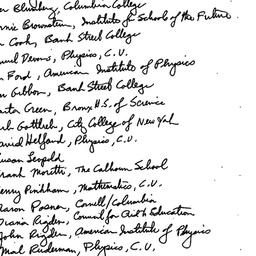 Blumberg, Columbia College
nnie Brownstein, Institute of Schools of the Future.
n Cook, Bank Street College
muel Devons, Physics, C.U.
n Ford, American Institute of Physics
n Gibbon, Bank Street College
Green, Bronx H.S. of Science
Gottlieb, City College of New York
avid Helfand, Physics, C.U.
usan Leopold
rank Moretti, The Calhoun School
enny Pinkham, Mathematics, C.U.
aron Posner, Cornell/Columbia
iana Rigden, Council for Aid to Education
John Rigden, American Institute of Physics
Mal Ruderman, Physics, C.U.